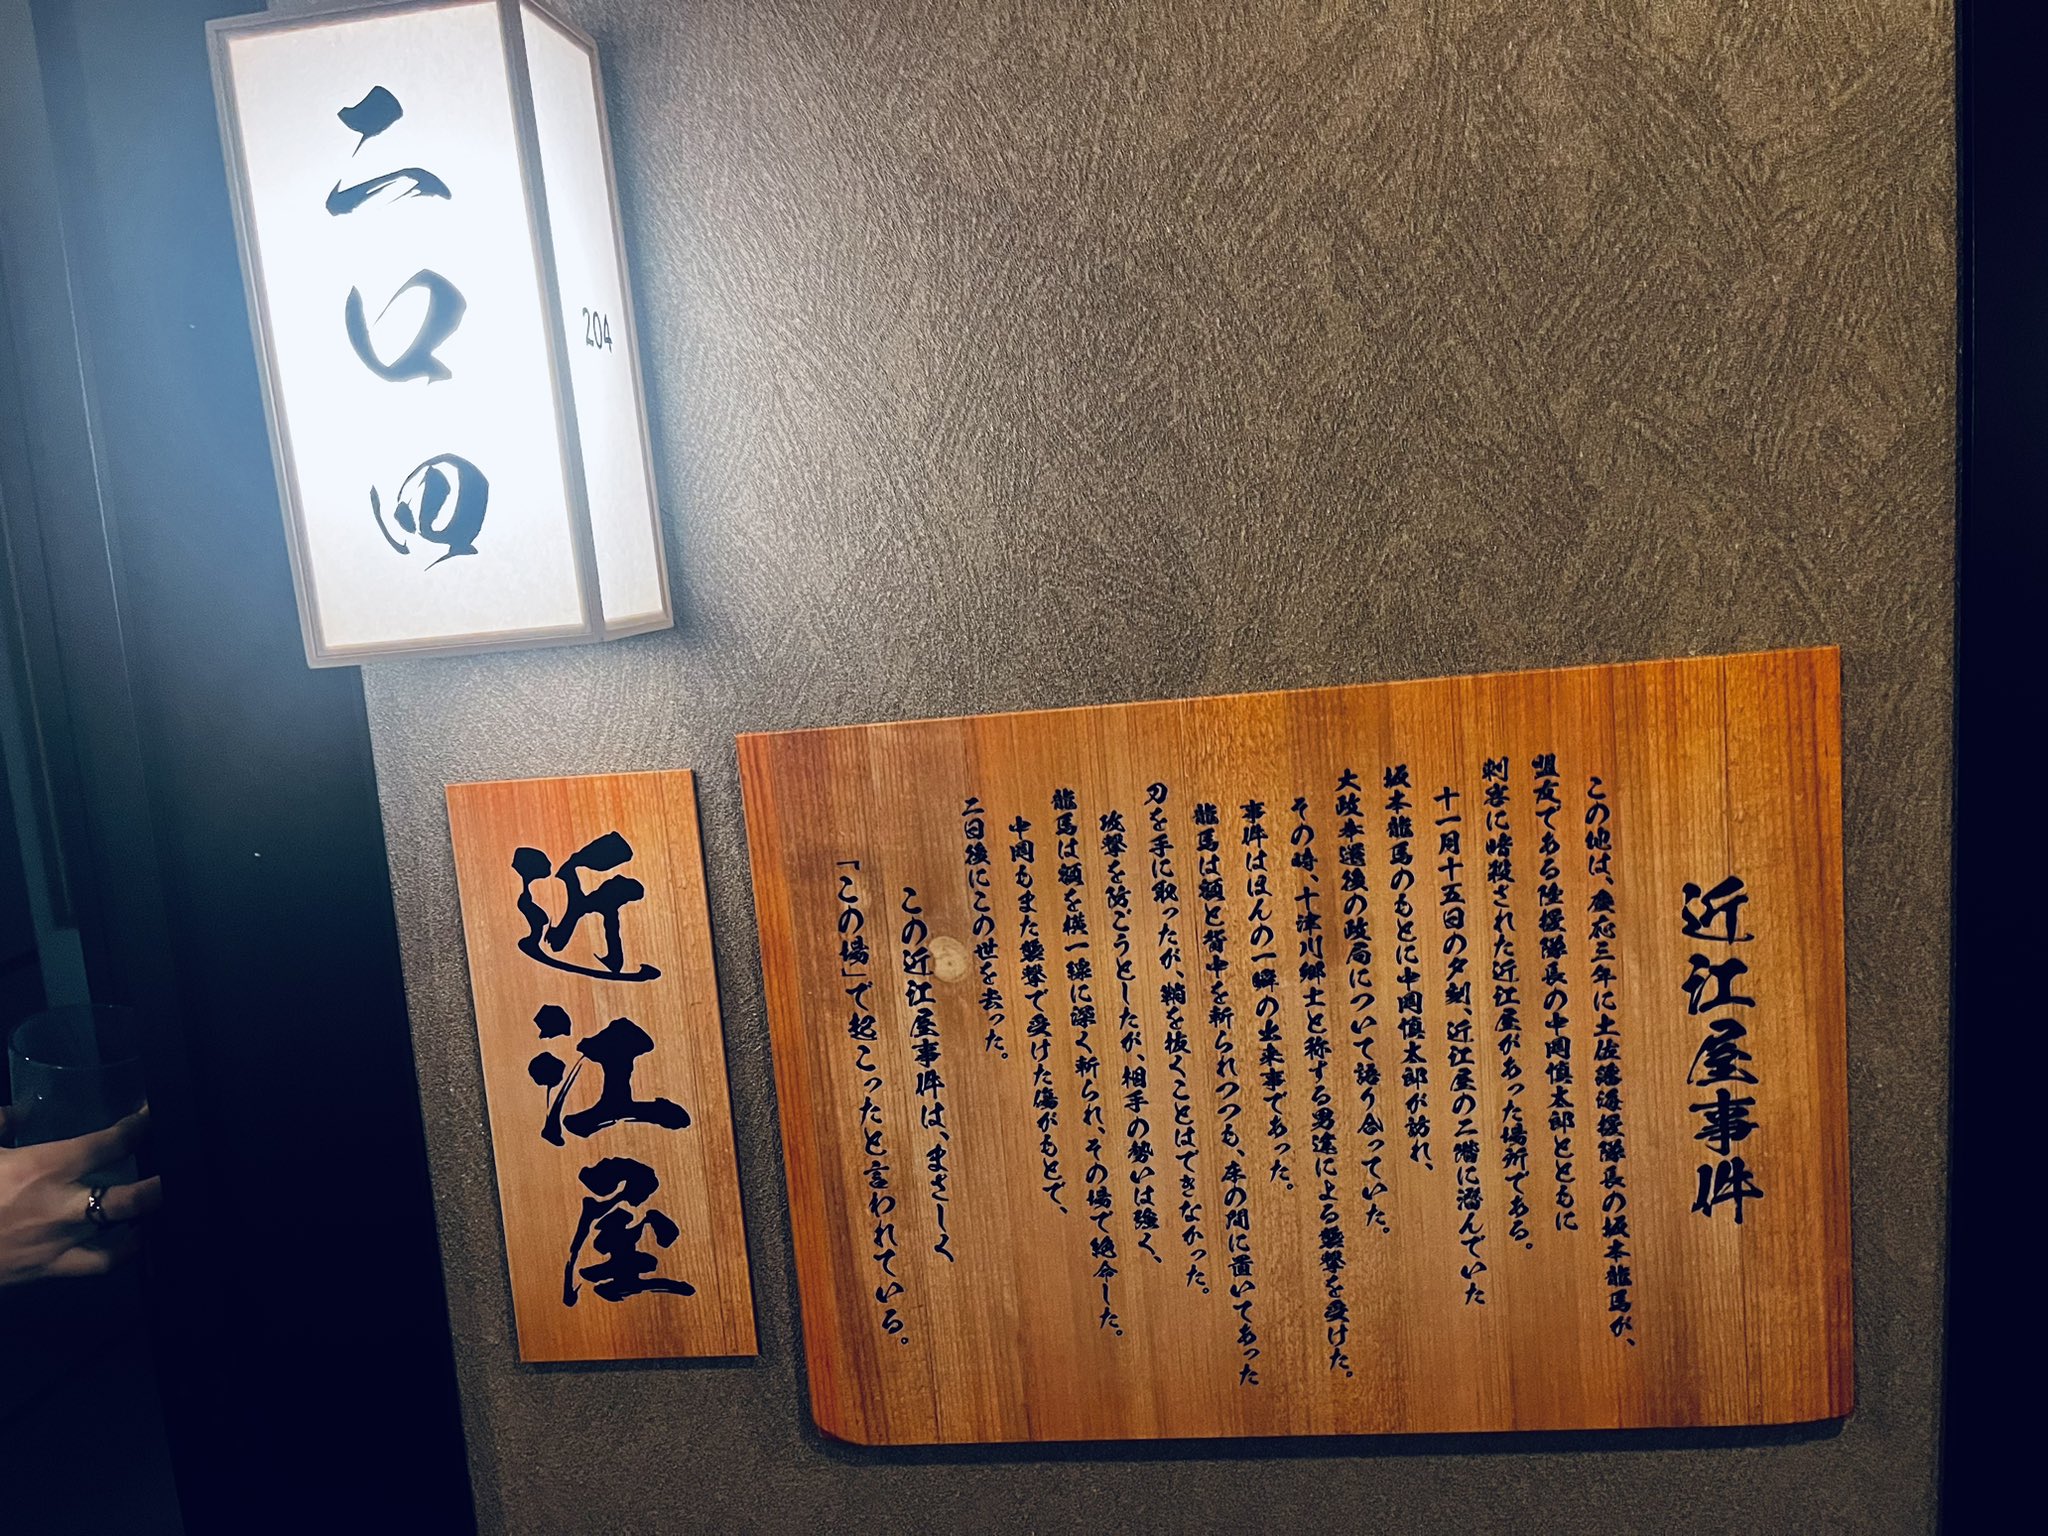 二〇四
204
近江屋
近江屋事件
この地は、慶応三年に土佐藩海援隊長の坂本龍馬が、
盟友である陸援隊長の中岡慎太郎とともに
刺客に暗殺された近江屋があった場所である。
十一月十五日の夕刻、近江屋の二階に潜んでいた
坂本龍馬のもとに中岡慎太郎が訪れ、
大政奉還後の政局について語り合っていた。
その時、十津川郷士と称する男達による襲撃を受けた。
事件はほんの一瞬の出来事であった。
龍馬は額と背中を斬られつつも、床の間に置いてあった
刀を手に取ったが、鞘を抜くことはできなかった。
攻撃を防ごうとしたが、相手の勢いは強く、
龍馬は額を横一線に深く斬られ、その場で絶命した。
中岡もまた襲撃で受けた傷がもとで、
二日後にこの世を去った。
この近江屋事件は、まさしく
「この場」で起こったと言われている。